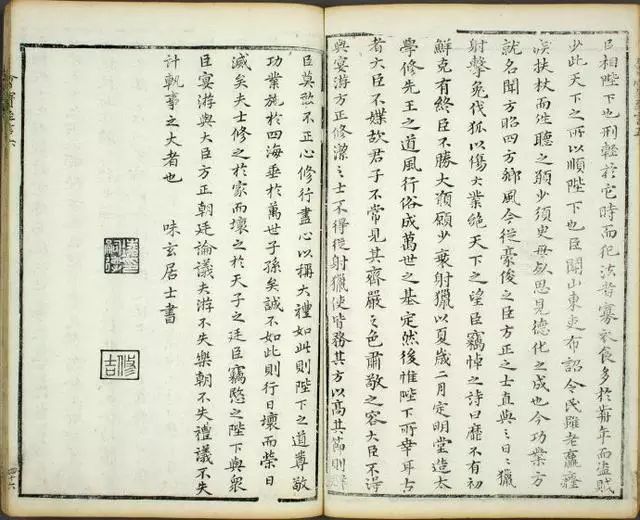 臣相陛下也刑輕於它時而犯法者寡衣食多於前年而盜賊
少此天下之所以順陛下也臣聞山東吏布詔令民雖老羸癃
疾扶杖而徃聽之願少須臾毋死思見德化之成也今功業方
就名聞方昭四方鄉風今從豪俊之臣方正之士直與之日〻獵
射擊兔伐狐以傷大業絶天下之望臣竊悼之詩曰靡不有初
鮮克有終臣不勝大願願少衰射獵以夏歲二月定明堂造太
學修先王之道風行俗成萬世之基定然後惟陛下所幸耳古
者大臣不媟故君子不常見其齊嚴之色肅敬之容大臣不得
與宴游方正修潔之士不得從射獵使皆務其方以高其節則
臣莫敢不正心修行盡心以稱大禮如此則陛下之道尊敬
功業施於四海垂於萬世子孫矣誠不如此則行日壞而榮日
滅矣夫士修之於家而壞之於天子之廷臣竊愍之陛下與衆
臣宴游與大臣方正朝廷論議夫游不失樂朝不失禮議不失
計軌事之大者也
味玄居士書
四十六